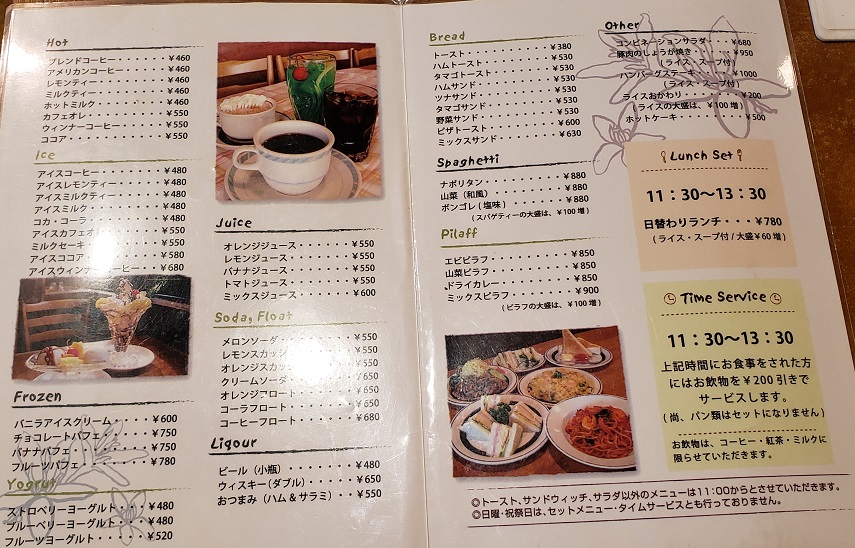 Hot
ブレンドコーヒー・・・・・¥460
アメリカンコーヒー・・・・¥460
レモンティー・・・・・・・¥460
ミルクティー・・・・・・・¥460
ホットミルク・・・・・・・¥460
カフェオレ・・・・・・・・¥550
ウィンナーコーヒー・・・・¥550
ココア・・・・・・・・・・¥550
Ice
アイスコーヒー・・・・・・¥480
アイスレモンティー・・・・¥480
アイスミルクティー・・・・¥480
アイスミルク・・・・・・・¥480
コカ・コーラ・・・・・・・¥480
アイスカフェオレ・・・・・¥550
ミルクセーキ・・・・・・・¥550
アイスココア・・・・・・・¥580
アイスウィンナーコーヒー・・¥680
Frozen
バニラアイスクリーム・・・・¥600
チョコレートパフェ・・・・・¥750
バナナパフェ・・・・・・・・¥750
フルーツパフェ・・・・・・・¥780
Yogrut
ストロベリーヨーグルト・・・¥480
ブルーベリーヨーグルト・・・¥480
フルーツヨーグルト・・・・・¥520
Juice
オレンジジュース・・・・・・・¥550
レモンジュース・・・・・・・・¥550
バナナジュース・・・・・・・・¥550
トマトジュース・・・・・・・・¥550
ミックスジュース・・・・・・・¥600
Soda, Float
メロンソーダ・・・・・・・・¥550
レモンスカッシュ・・・・・・¥550
オレンジスカッシュ・・・・・¥550
クリームソーダ・・・・・・・¥650
オレンジフロート・・・・・・¥650
コーラフロート・・・・・・・¥650
コーヒーフロート・・・・・・¥680
Liqour
ビール(小瓶)・・・・・・・¥480
ウィスキー(ダブル)・・・・¥650
おつまみ(ハム&サラミ)・・¥550
Bread
トースト・・・・・・・・・・¥380
ハムトースト・・・・・・・・¥530
タマゴトースト・・・・・・・¥530
ハムサンド・・・・・・・・・¥530
ツナサンド・・・・・・・・・¥530
タマゴサンド・・・・・・・・¥530
野菜サンド・・・・・・・・・¥530
ピザトースト・・・・・・・・¥600
ミックスサンド・・・・・・・¥630
Spaghetti
ナポリタン・・・・・・・・・¥880
山菜(和風)・・・・・・・・¥880
ボンゴレ(塩味)・・・・・・¥880
(スパゲティーの大盛は、¥100増)
Pilaff
エビピラフ・・・・・・・・・¥850
山菜ピラフ・・・・・・・・・¥850
ドライカレー・・・・・・・・¥850
ミックスピラフ・・・・・・・¥900
(ピラフの大盛は、¥100増)
Other
コンビネーションサラダ・・¥680
豚肉のしょうが焼き・・・・¥950
(ライス・スープ付)
ハンバーグステーキ・・・・¥1000
(ライス・スープ付)
ライスおかわり・・・・・・¥200
(ライスの大盛は、¥100増)
ホットケーキ・・・・・・・¥500
Lunch Set
11:30〜13:30
日替わりランチ・・・¥780
(ライス・スープ付/大盛¥60増)
Time Service
11:30〜13:30
上記時間にお食事をされた方
にはお飲物を¥200引きで
サービスします。
(尚、パン類はセットになりません)
お飲物は、コーヒー・紅茶・ミルクに
限らせていただきます。
◎トースト、サンドウィッチ、サラダ以外のメニューは11:00からとさせていただきます。
◎日曜・祝祭日は、セットメニュー・タイムサービスとも行っておりません。